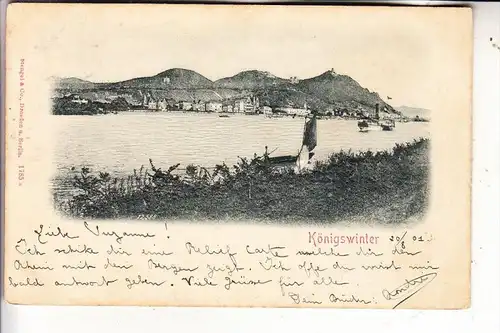 Stengel & Co., Dresden u. Berlin. 1785
Königswinter
20/8 02
Liebe Suzanne!
Ich schik dir eine Relief Carte welche dir den
Rhein mit den Bergen zeigt. Ich offe du wirst mir
bald antwort geben. Viele Grüsse für alle
Dein Bruder: